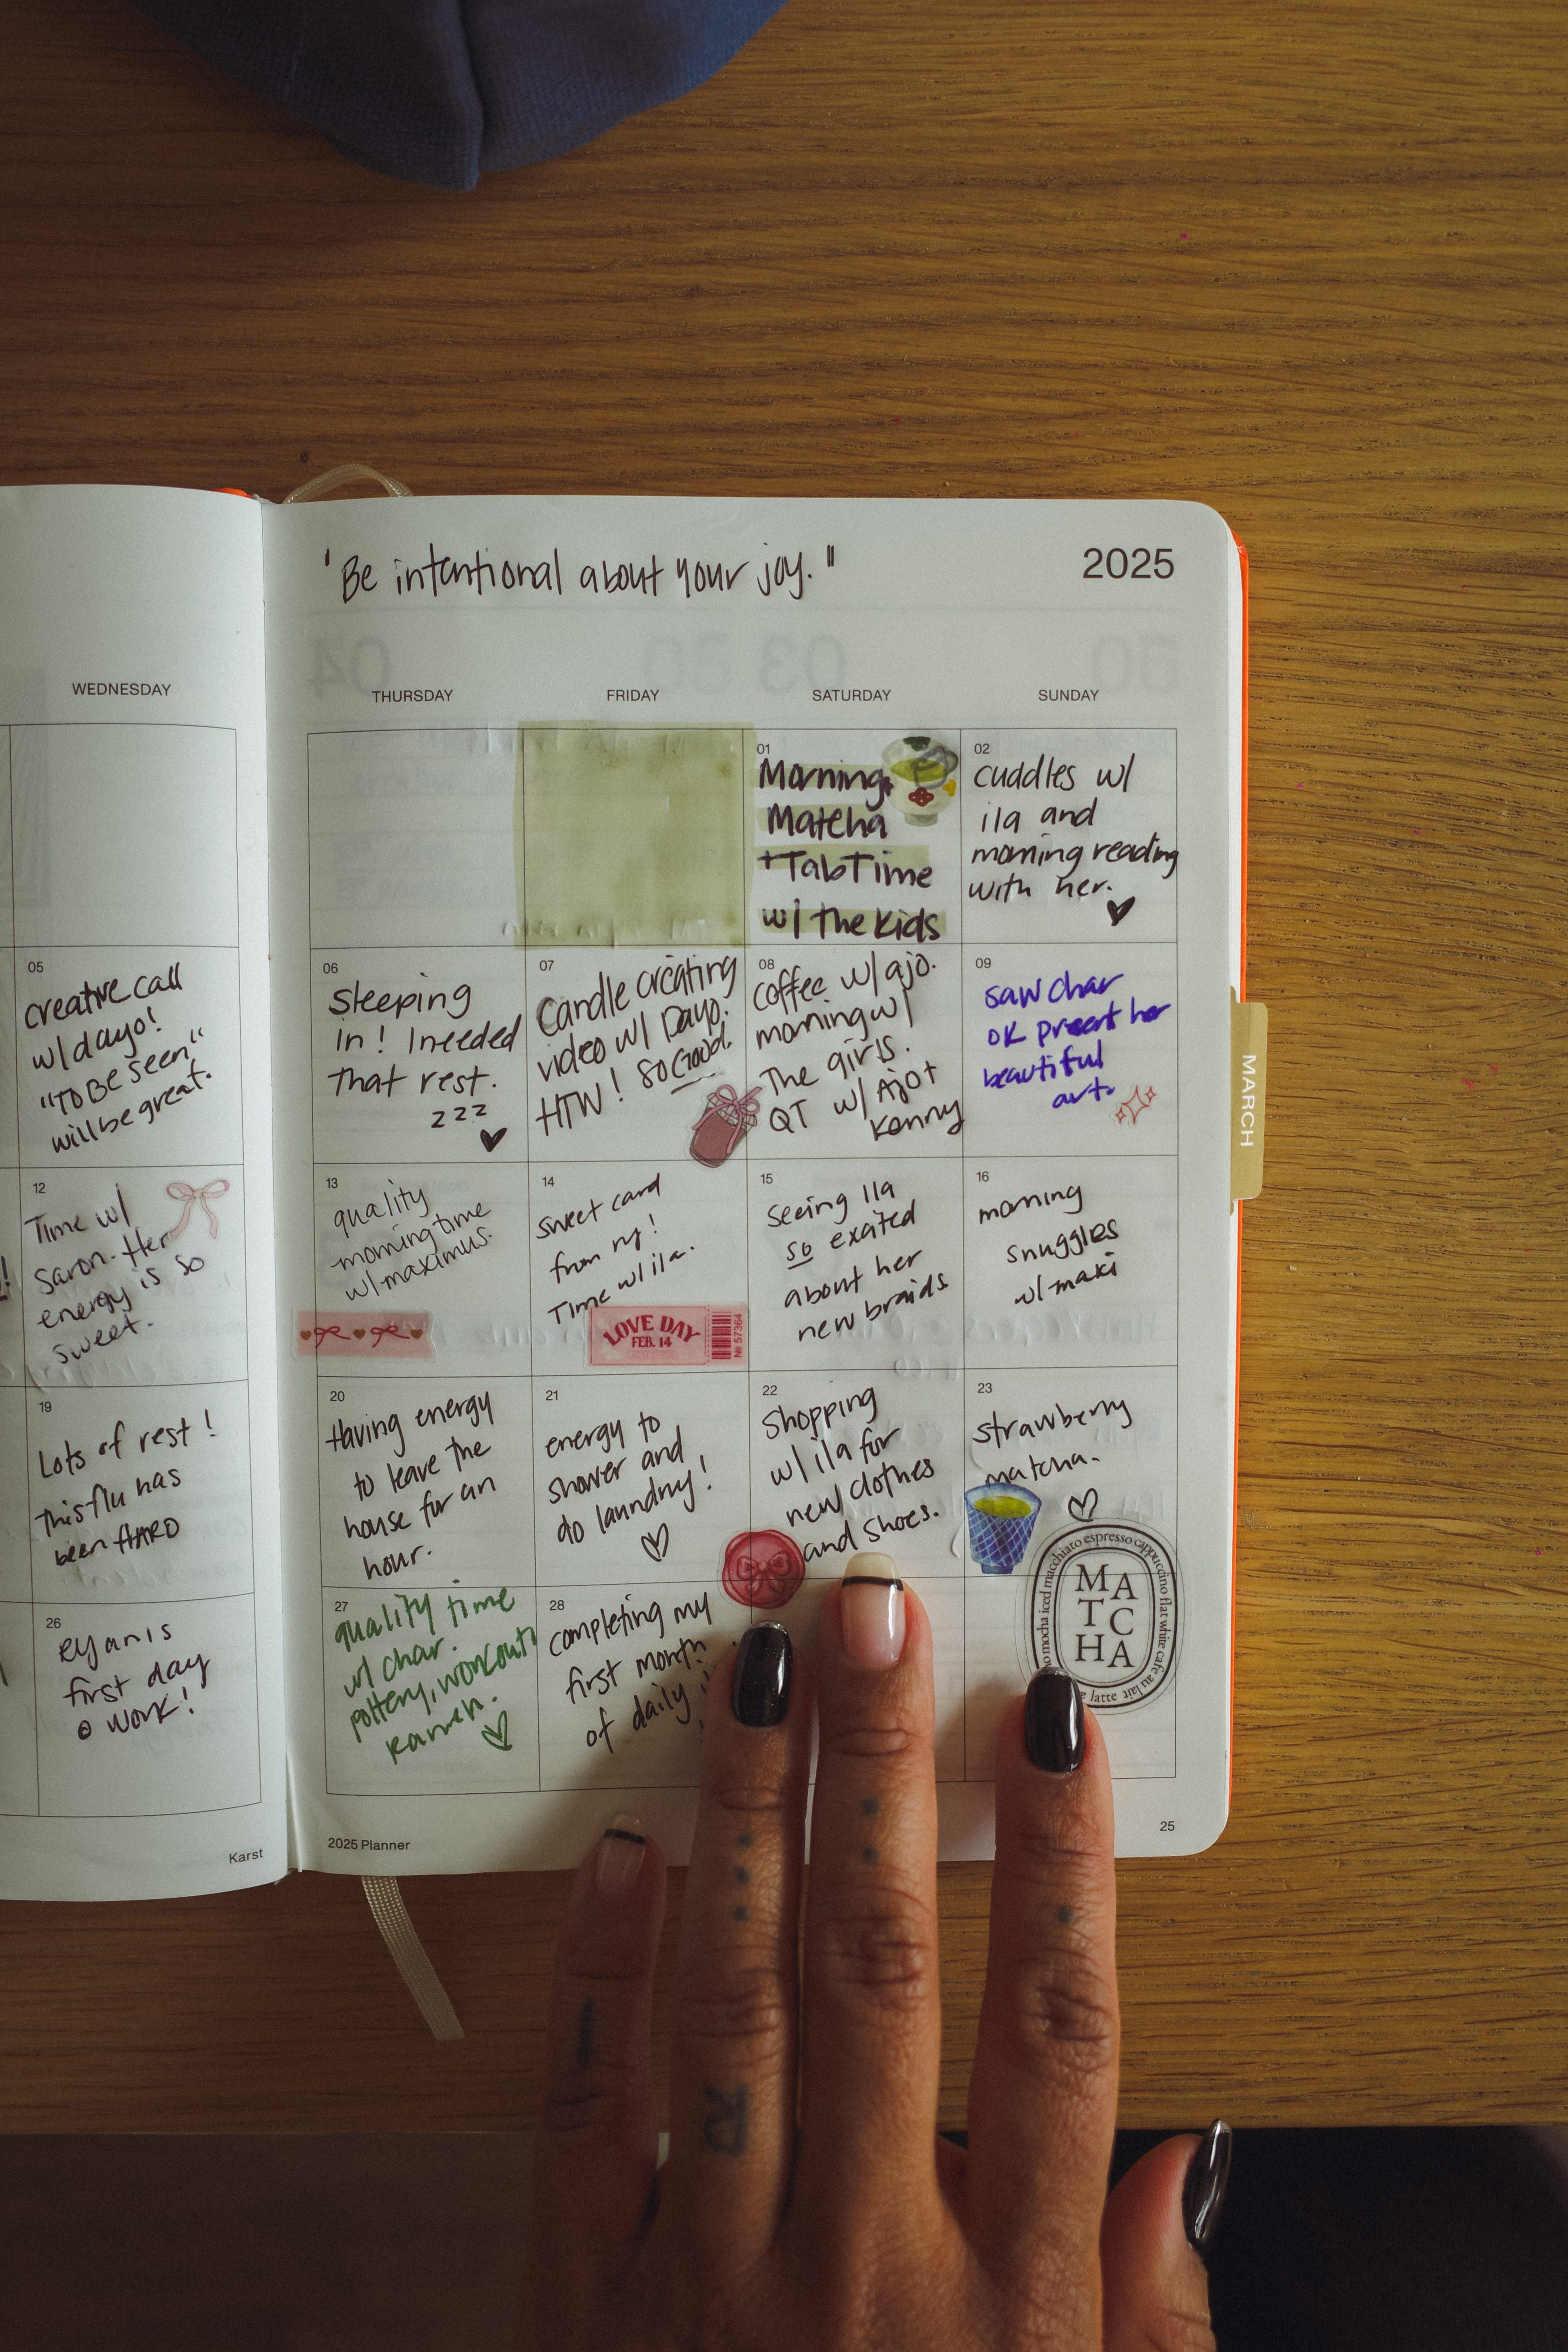 "Be intentional about your joy."
2025
WEDNESDAY
THURSDAY
FRIDAY
SATURDAY
SUNDAY
01
Morning
Matcha
+ TabTime
w/ the kids
02
cuddles w/
ila and
morning reading
with her.
05
creative call
w/ dayo!
"TO BE Seen"
will be great.
06
Sleeping
in! I needed
that rest.
zzz
07
Candle creating
video w/ Dayo.
HTW! SO Good.
08
coffee w/ ajo.
morning w/
The girls.
QT w/ Ajo +
Kenny
09
saw char
OK present her
beautiful
art.
MARCH
12
Time w/
Saron. Her
energy is so
sweet.
13
quality
morning time
w/ maximus.
14
sweet card
from ry!
Time w/ ila.
LOVE DAY
FEB. 14
No 57364
15
Seeing Ila
so exited
about her
new braids
16
morning
snuggles
w/ maxi
19
Lots of rest!
This flu has
been HARD
20
Having energy
to leave the
house for an
hour.
21
energy to
shower and
do laundry!
22
Shopping
w/ ila for
new clothes
and shoes.
23
strawberry
matcha.
macchiato espresso cappuccino flat white cafe au lait latte
mocha iced
MA
TC
HA
26
Ryan's
first day
@ work!
27
quality time
w/ char.
pottery, workout,
ramen.
28
completing my
first month
of daily
Karst
2025 Planner
25